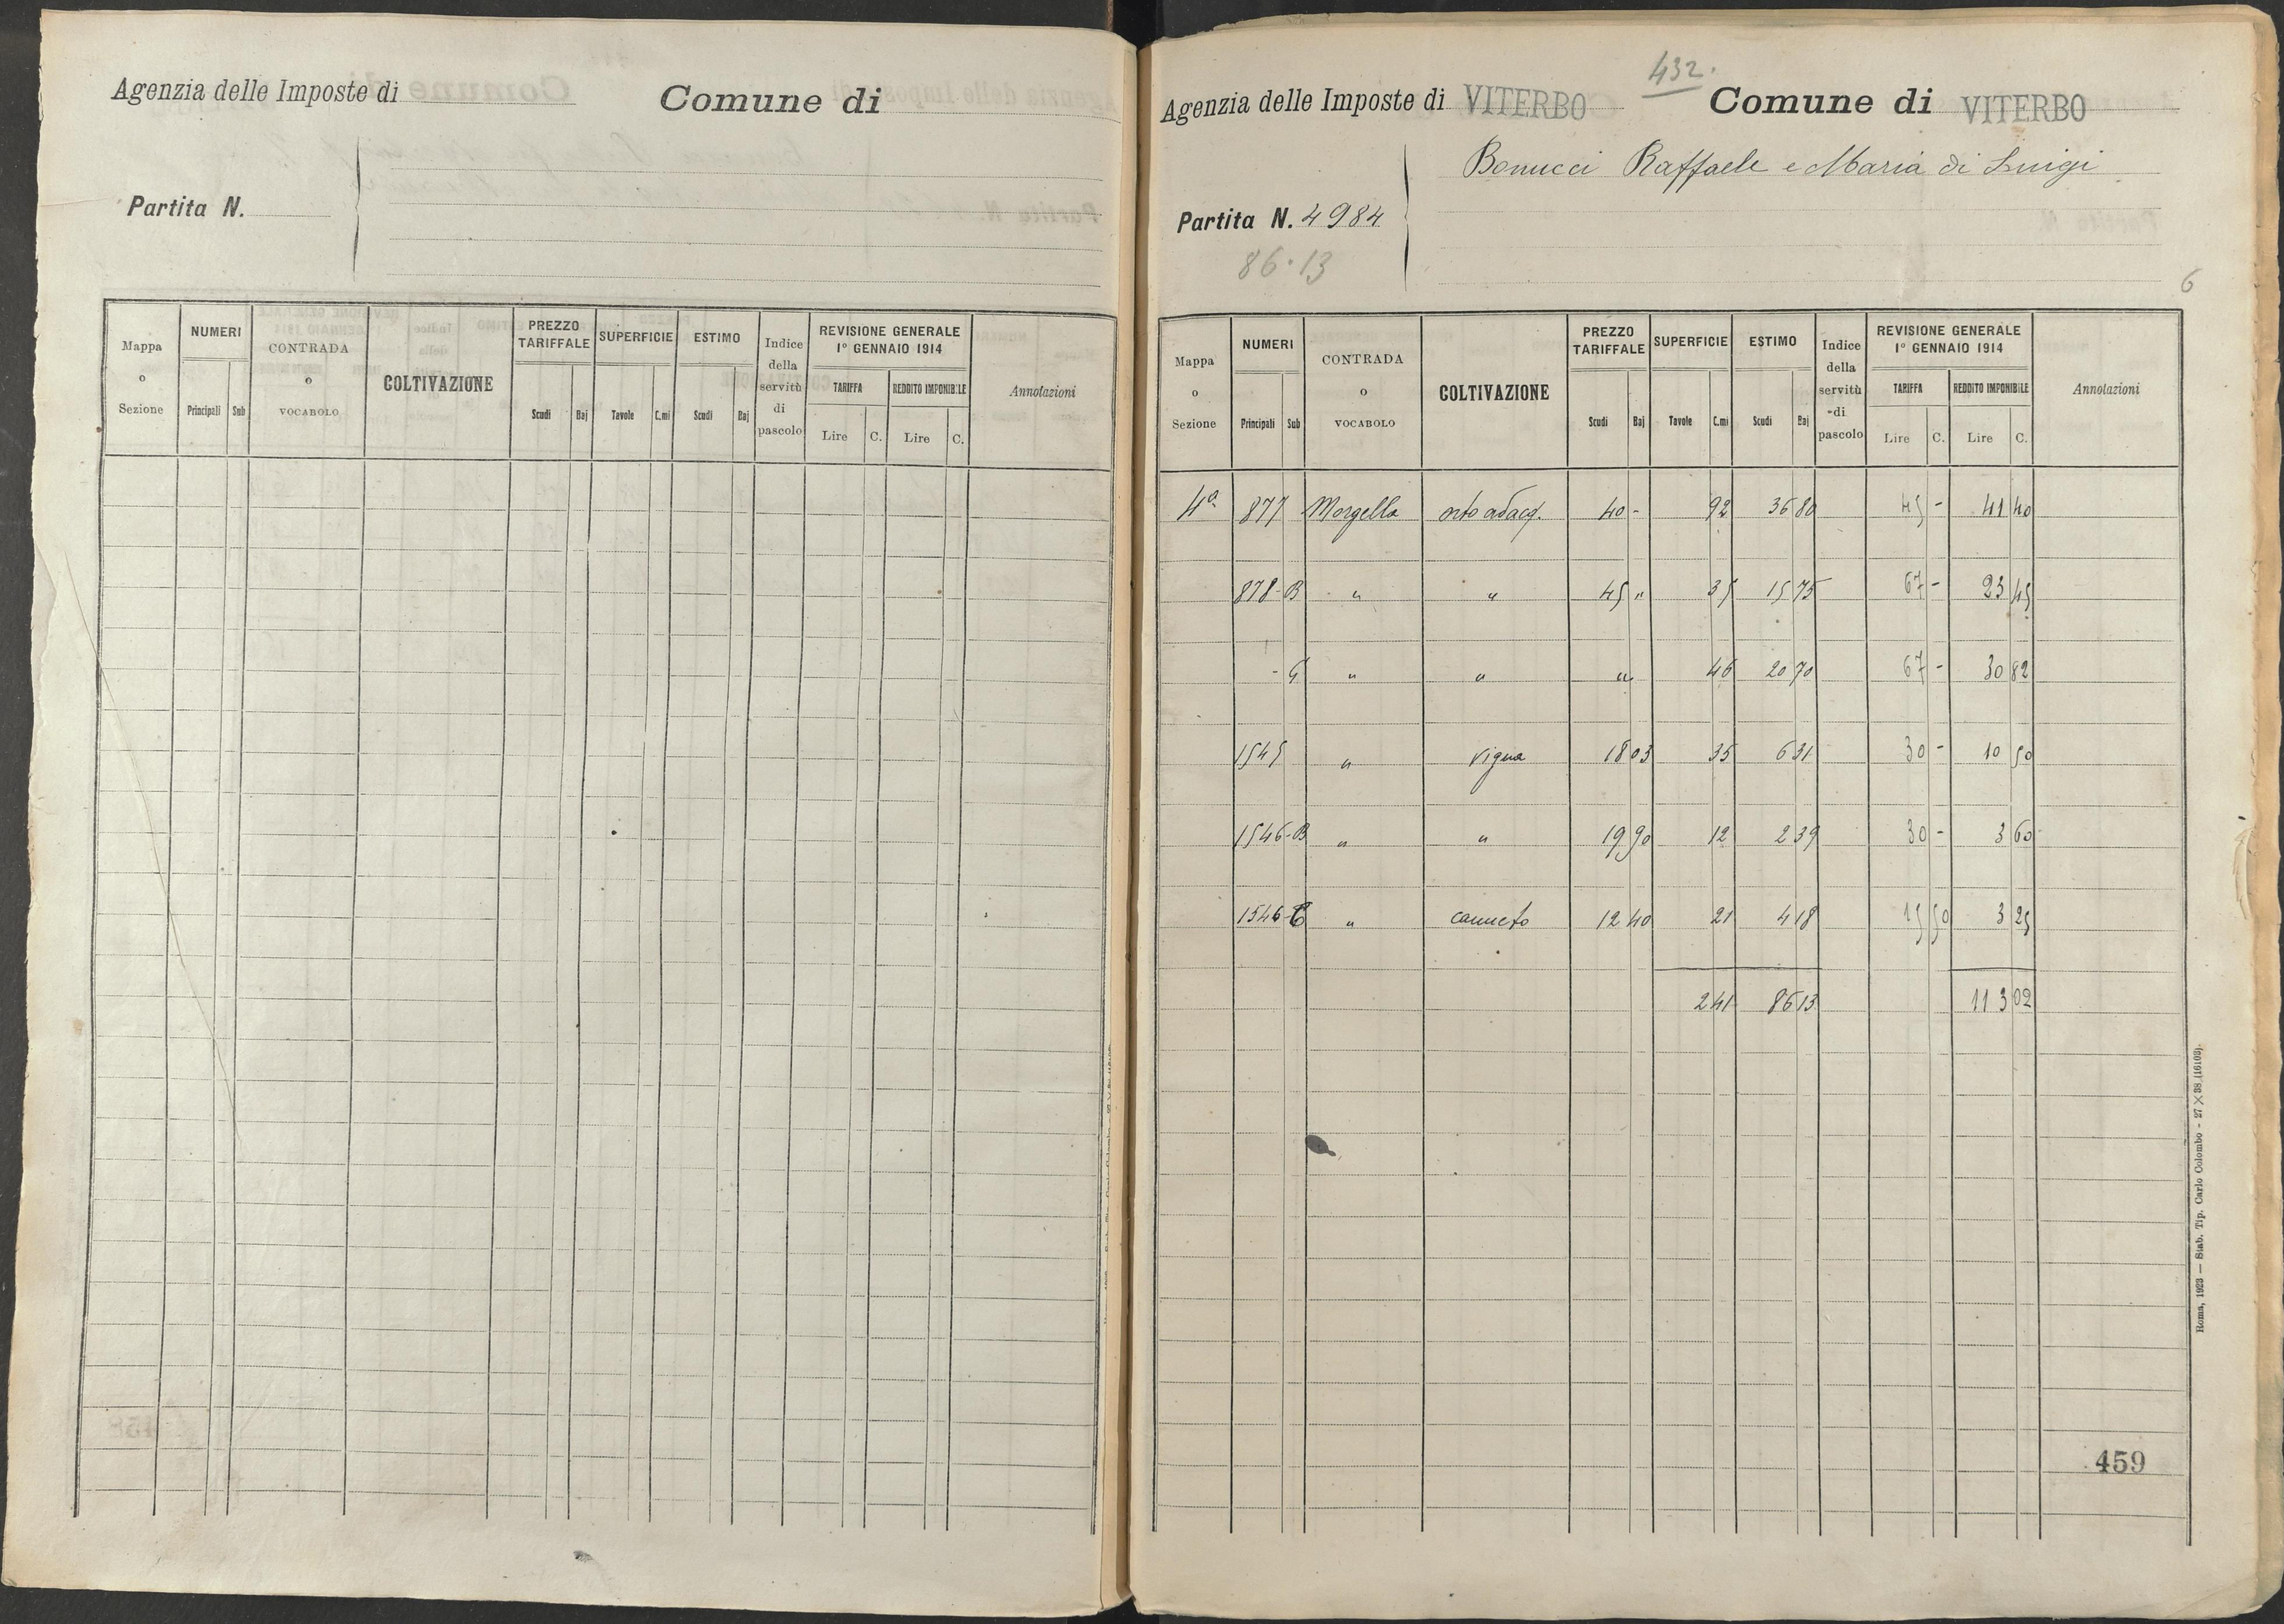 Agenzia delle Imposte di Comune di
Partita N.
Mappa o Sezione NUMERI Principali Sub CONTRADA o VOCABOLO COLTIVAZIONE PREZZO TARIFFALE Scudi Baj SUPERFICIE Tavole C.mi ESTIMO Scudi Baj Indice della servitù di pascolo REVISIONE GENERALE 1° GENNAIO 1914 TARIFFA Lire C. REDDITO IMPONIBILE Lire C. Annotazioni
432.
Agenzia delle Imposte di VITERBO Comune di VITERBO
Bonucci Raffaele e Maria di Luigi
Partita N. 4984
86.13
6
Mappa o Sezione NUMERI Principali Sub CONTRADA o VOCABOLO COLTIVAZIONE PREZZO TARIFFALE Scudi Baj SUPERFICIE Tavole C.mi ESTIMO Scudi Baj Indice della servitù di pascolo REVISIONE GENERALE 1° GENNAIO 1914 TARIFFA Lire C. REDDITO IMPONIBILE Lire C. Annotazioni
4ª 877 Morgella orto adacq. 40 - 92 36 80 45 - 41 40
878 - B " " 45 " 35 15 75 67 - 23 45
- " " " 46 20 70 67 - 30 82
1545 " vigna 18 03 35 6 31 30 - 10 50
1546 - B " " 19 90 12 2 39 30 - 3 60
1546 - C " canneto 12 40 21 4 18 15 50 3 25
2 41 86 13 113 02
459
Roma, 1923 — Stab. Tip. Carlo Colombo - 27 X 38 (16103).